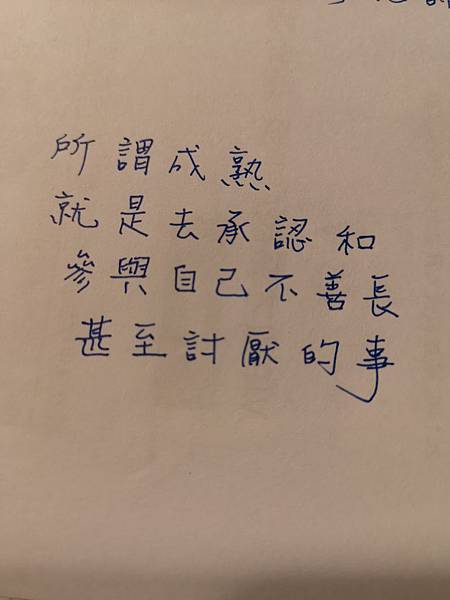 所謂成熟
就是去承認和
參與自己不善長
甚至討厭的事